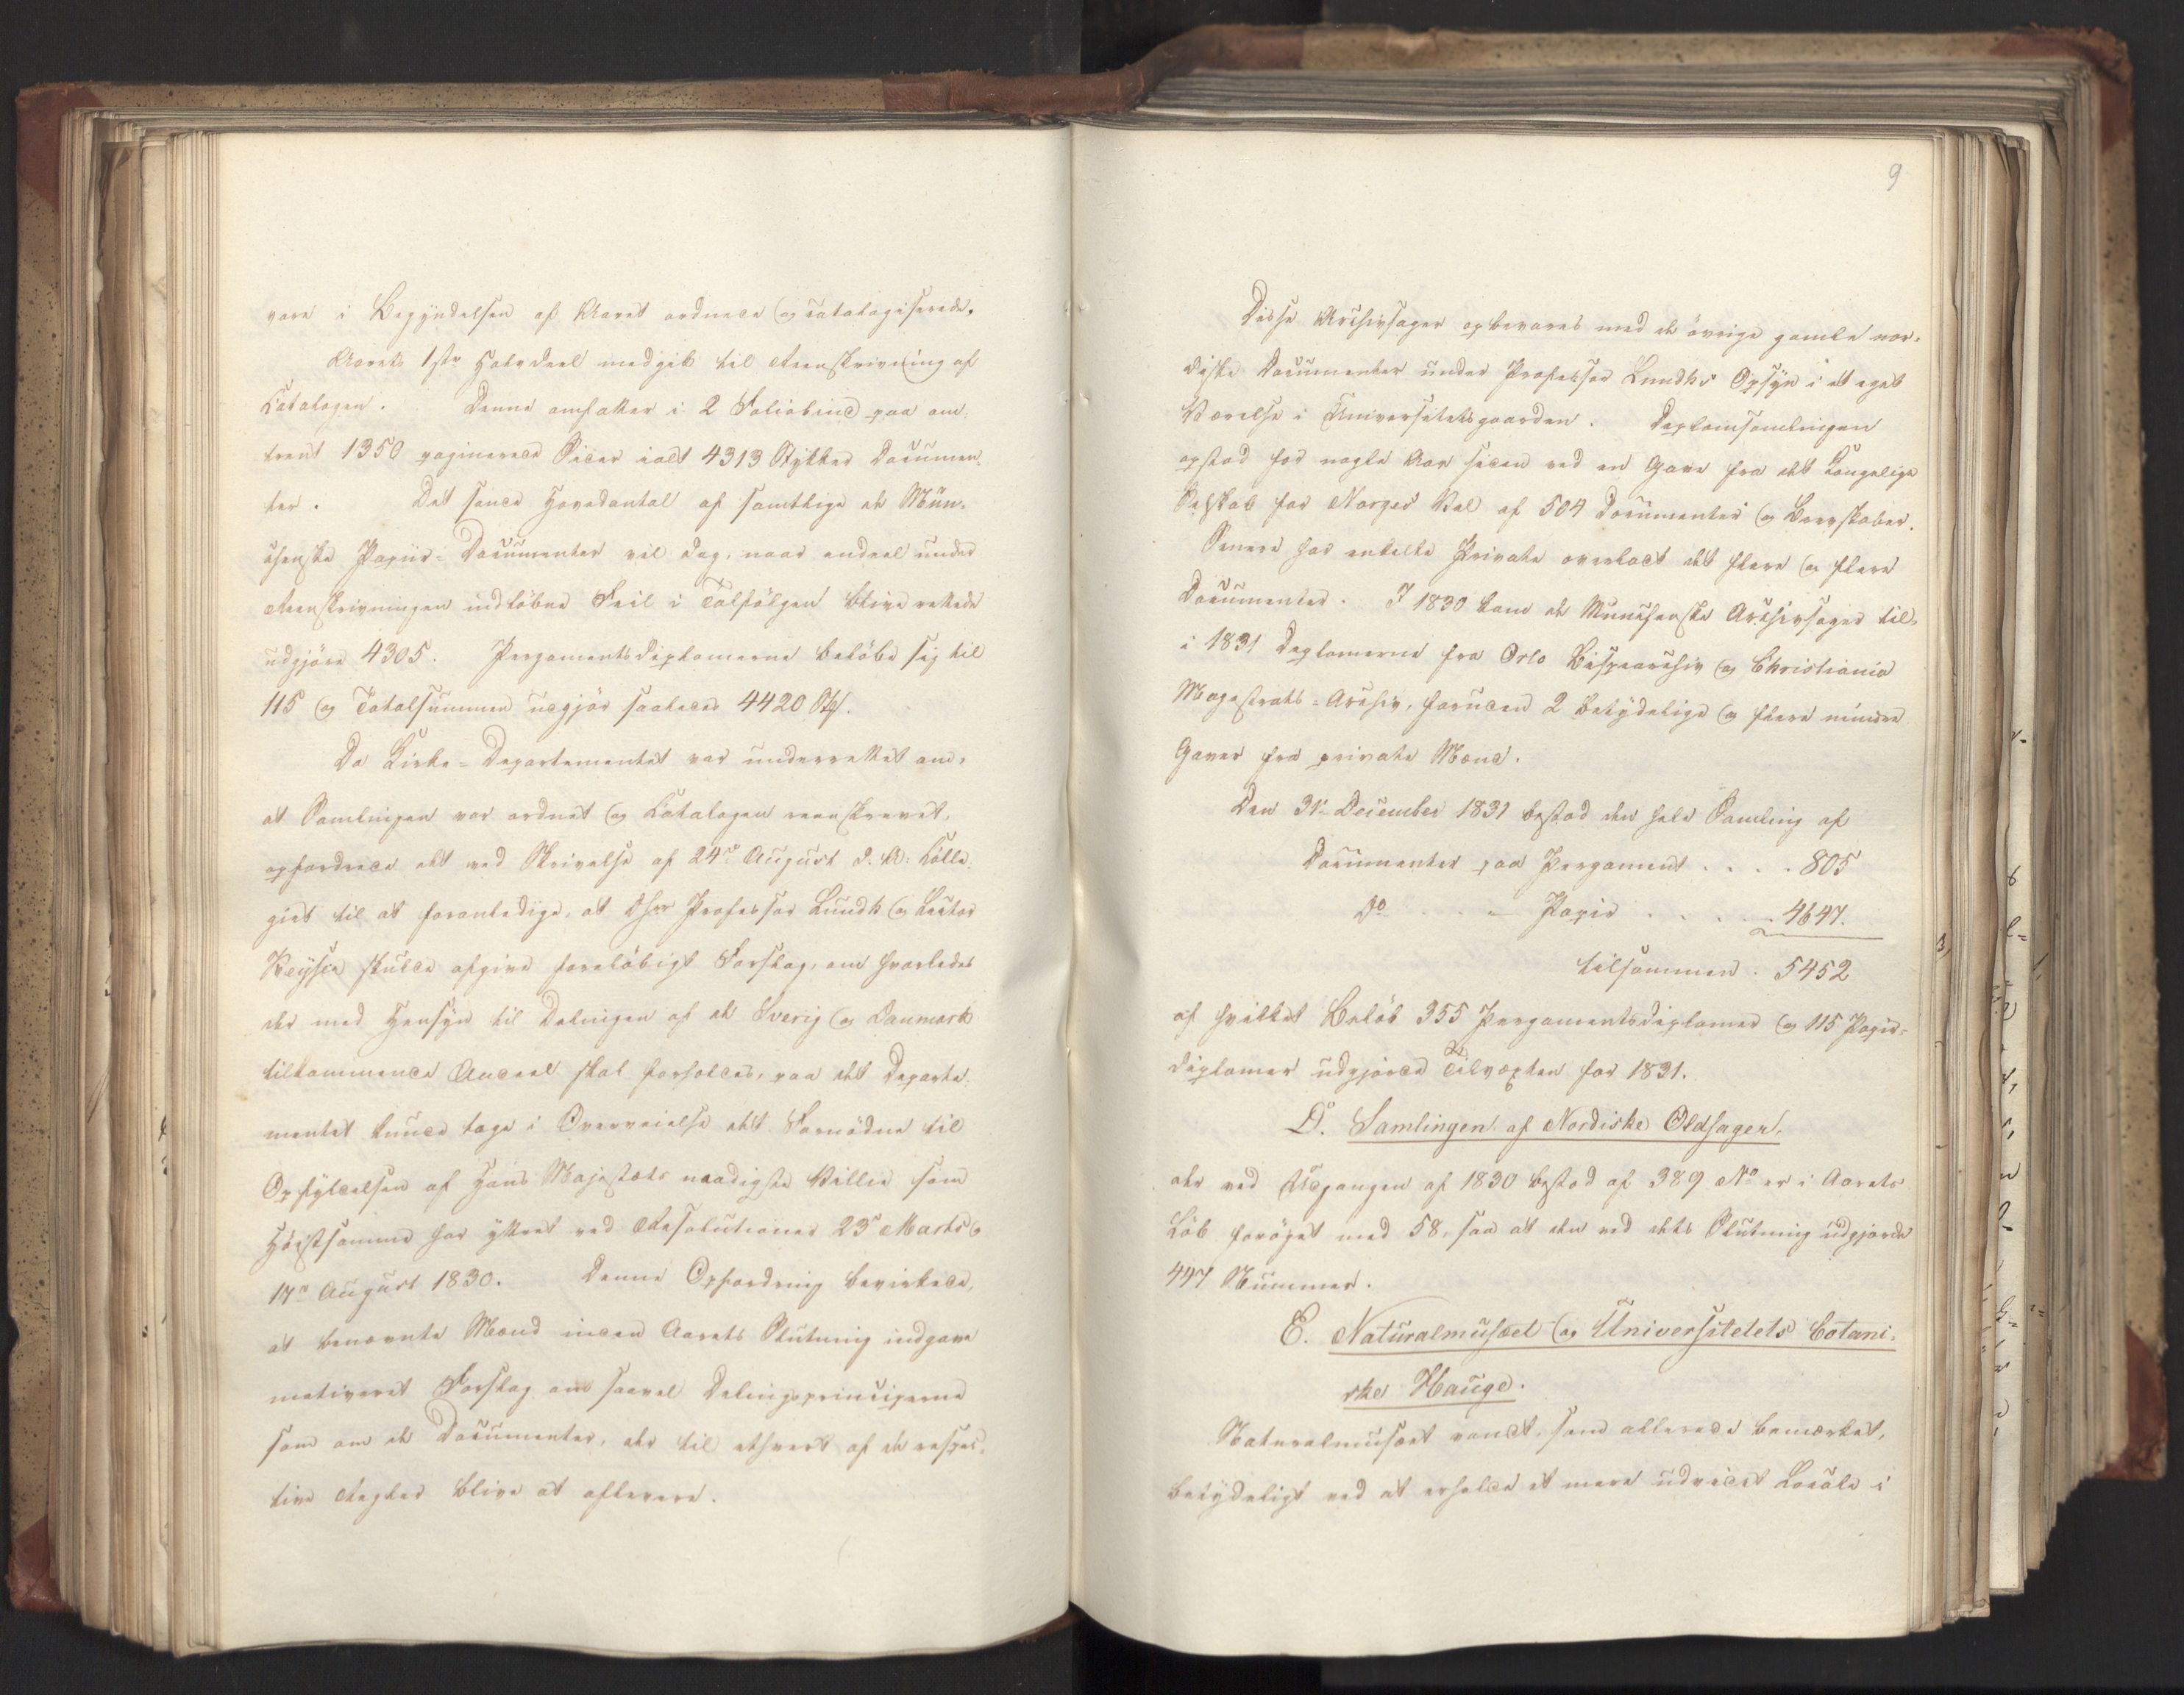 vare i Begyndelsen af Aaret ordnede og catalogiserede.
Aarets 1ste Halvdeel medgik til Reenskrivning af
Catalogen. Denne omfatter i 2 Foliobind paa om-
trent 1350 paginerede Sider ialt 4313 Stykker Documen-
ter. Det sande Hovedantal af samtlige de Mün-
chenske Papiir-Documenter vil dog, naar endeel under
Reenskrivningen indløbne Feil i Talfølgen blive rettede
udgjøre 4305. Pergamentsdiplomerne beløbe sig til
115 og Totalsummen udgjør saaledes 4420 Stk.
Da Kirke-Departementet var underrettet om,
at Samlingen var ordnet og Catalogen reenskrevet,
opfordrede det ved Skrivelse af 24de August d. A. Colle-
giet til at foranledige, at DHrr Professor Lundh og Lector
Keyser skulde afgive foreløbigt Forslag, om hvorledes
der med Hensyn til Delingen af de Sverig og Danmark
tilkommende Andeel skal forholdes, paa det Departe-
mentet kunde tage i Overveielse det Fornødne til
Opfyldelsen af Hans Majestæts naadigste Villie som
Høistsamme har yttret ved Resolutioner 23de Marts og
17de August 1830. Denne Opfordring bevirkede,
at benævnte Mænd inden Aarets Slutning indgave
motiveret Forslag om saavel Delingsprinciperne
som om de Documenter, der til ethvert af de respec-
tive Rigker blive at aflevere.
9
Disse Archivsager opbevares med de øvrige gamle nor-
diske Documenter under Professor Lundhs Opsyn i et eget
Værelse i Universitetsgaarden. Diplomsamlingen
opstod for nogle Aar siden ved en Gave fra det Kongelige
Selskab for Norges Vel af 504 Documenter og Brevskaber.
Senere har enkelte Private overladt det flere og flere
Documenter. I 1830 kom de Münchenske Archivsager til,
i 1831 Diplomerne fra Oslo Bispearchiv og Christiania
Magistrats-Archiv, foruden 2 betydelige og flere mindre
Gaver fra private Mænd.
Den 31te December 1831 bestod den hele Samling af
Documenter paa Pergament . . . . 805
Do . . - Papir . . . . . 4647.
tilsammen . 5452
af hvilket Beløb 355 Pergamentsdiplomer og 115 Papir-
diplomer udgjorde Tilvæxten for 1831.
D. Samlingen af Nordiske Oldsager,
der ved Udgangen af 1830 bestod af 389 No er i Aarets
Løb forøget med 58, saa at den ved dets Slutning udgjorde
447 Nummer.
E. Naturalmusæet og Universitetets botani-
ske Hauge.
Naturalmusæet vandt, som allerede bemærket,
betydeligt ved at erholde et mere udvidet Locale i